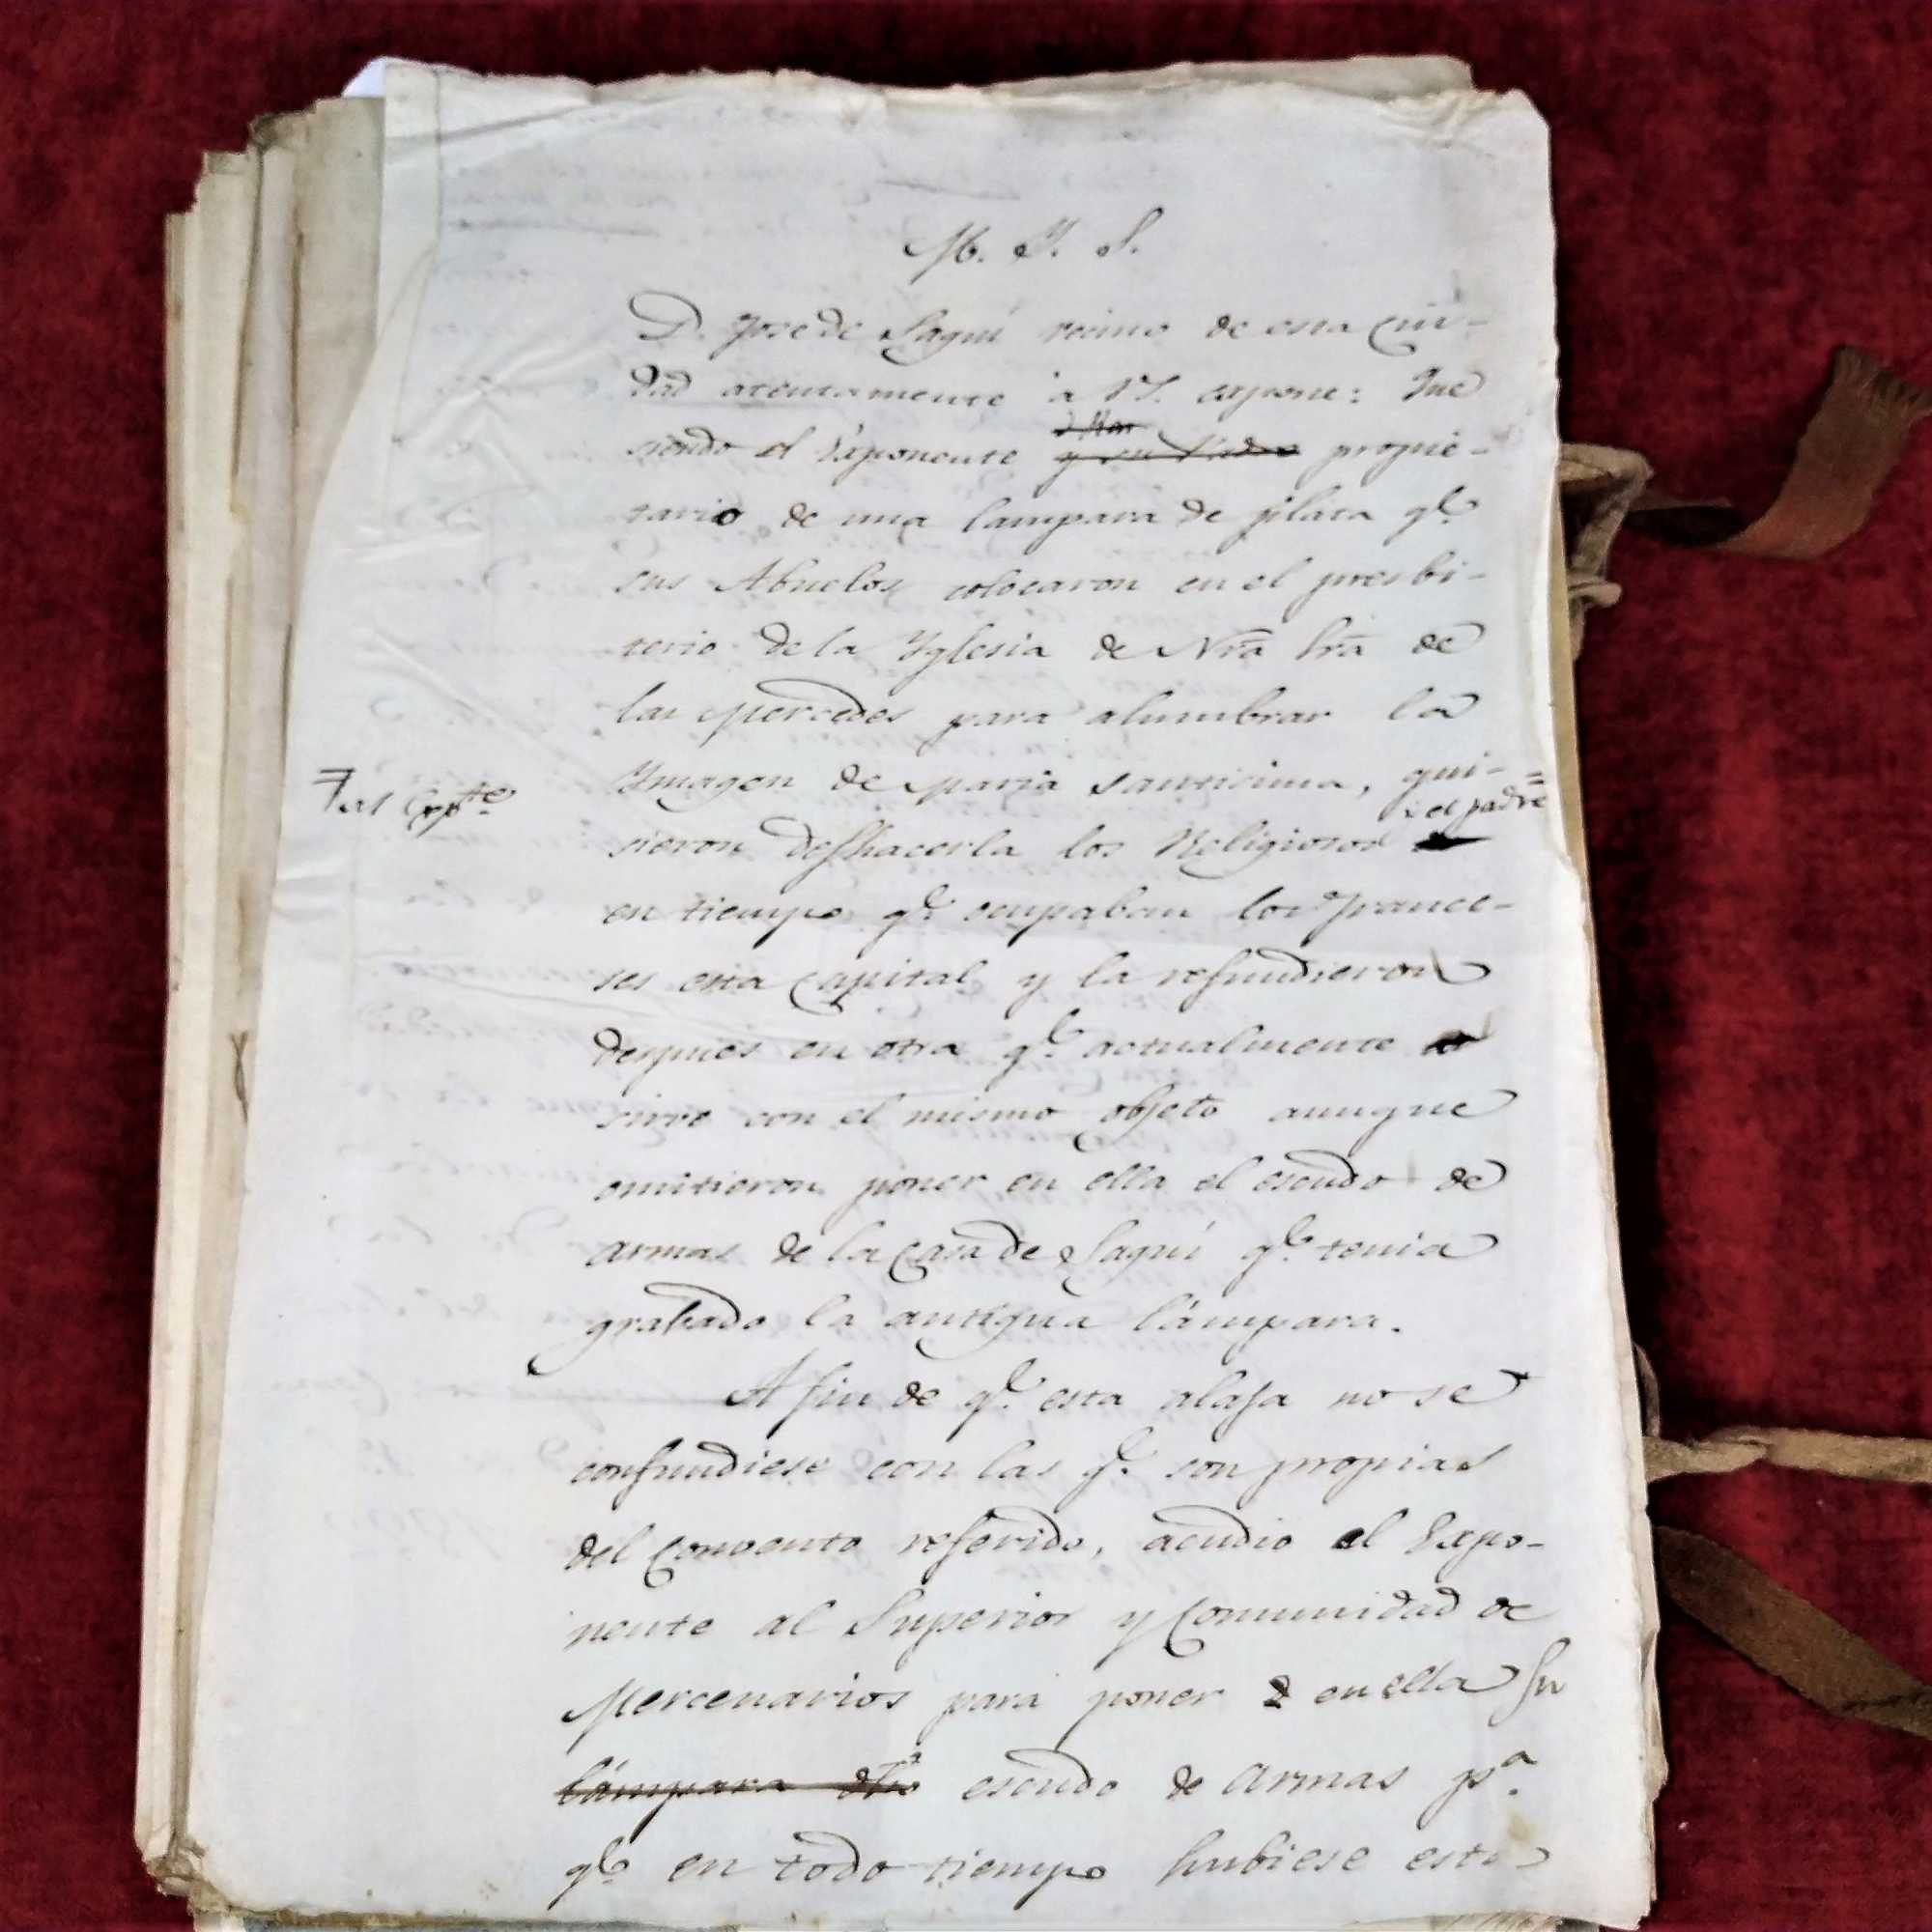 M. Y. S.
D. Jose de Sagui vecino de esta Ciu-
dad atentamente à VS. expone: Que
siendo el Exponente y su Padre propie-
tario de una lampara de plata qe.
sus Abuelos colocaron en el presbi-
terio de la Yglesia de Nrã Srã de
las Mercedes para alumbrar la
Ymagen de Maria Santisima, qui-
=
el padre
sieron desHacerla los Religiosos
en tiempo qe. ocupaban los france-
ses esta Capital y la refundieron
despues en otra qe. actualmente
sirve con el mismo objeto aunque
omitieron poner en ella el escudo de
armas de la Casa de Sagui qe. tenia
grabado la antigua lámpara.
A fin de qe. esta alaja no se
confundiese con las qe. son propias
del Convento referido, acudio el Expo-
nente al Superior y Comunidad de
Mercenarios para poner en ella su
lámpara dha escudo de armas pa.
qe. en todo tiempo hubiese este